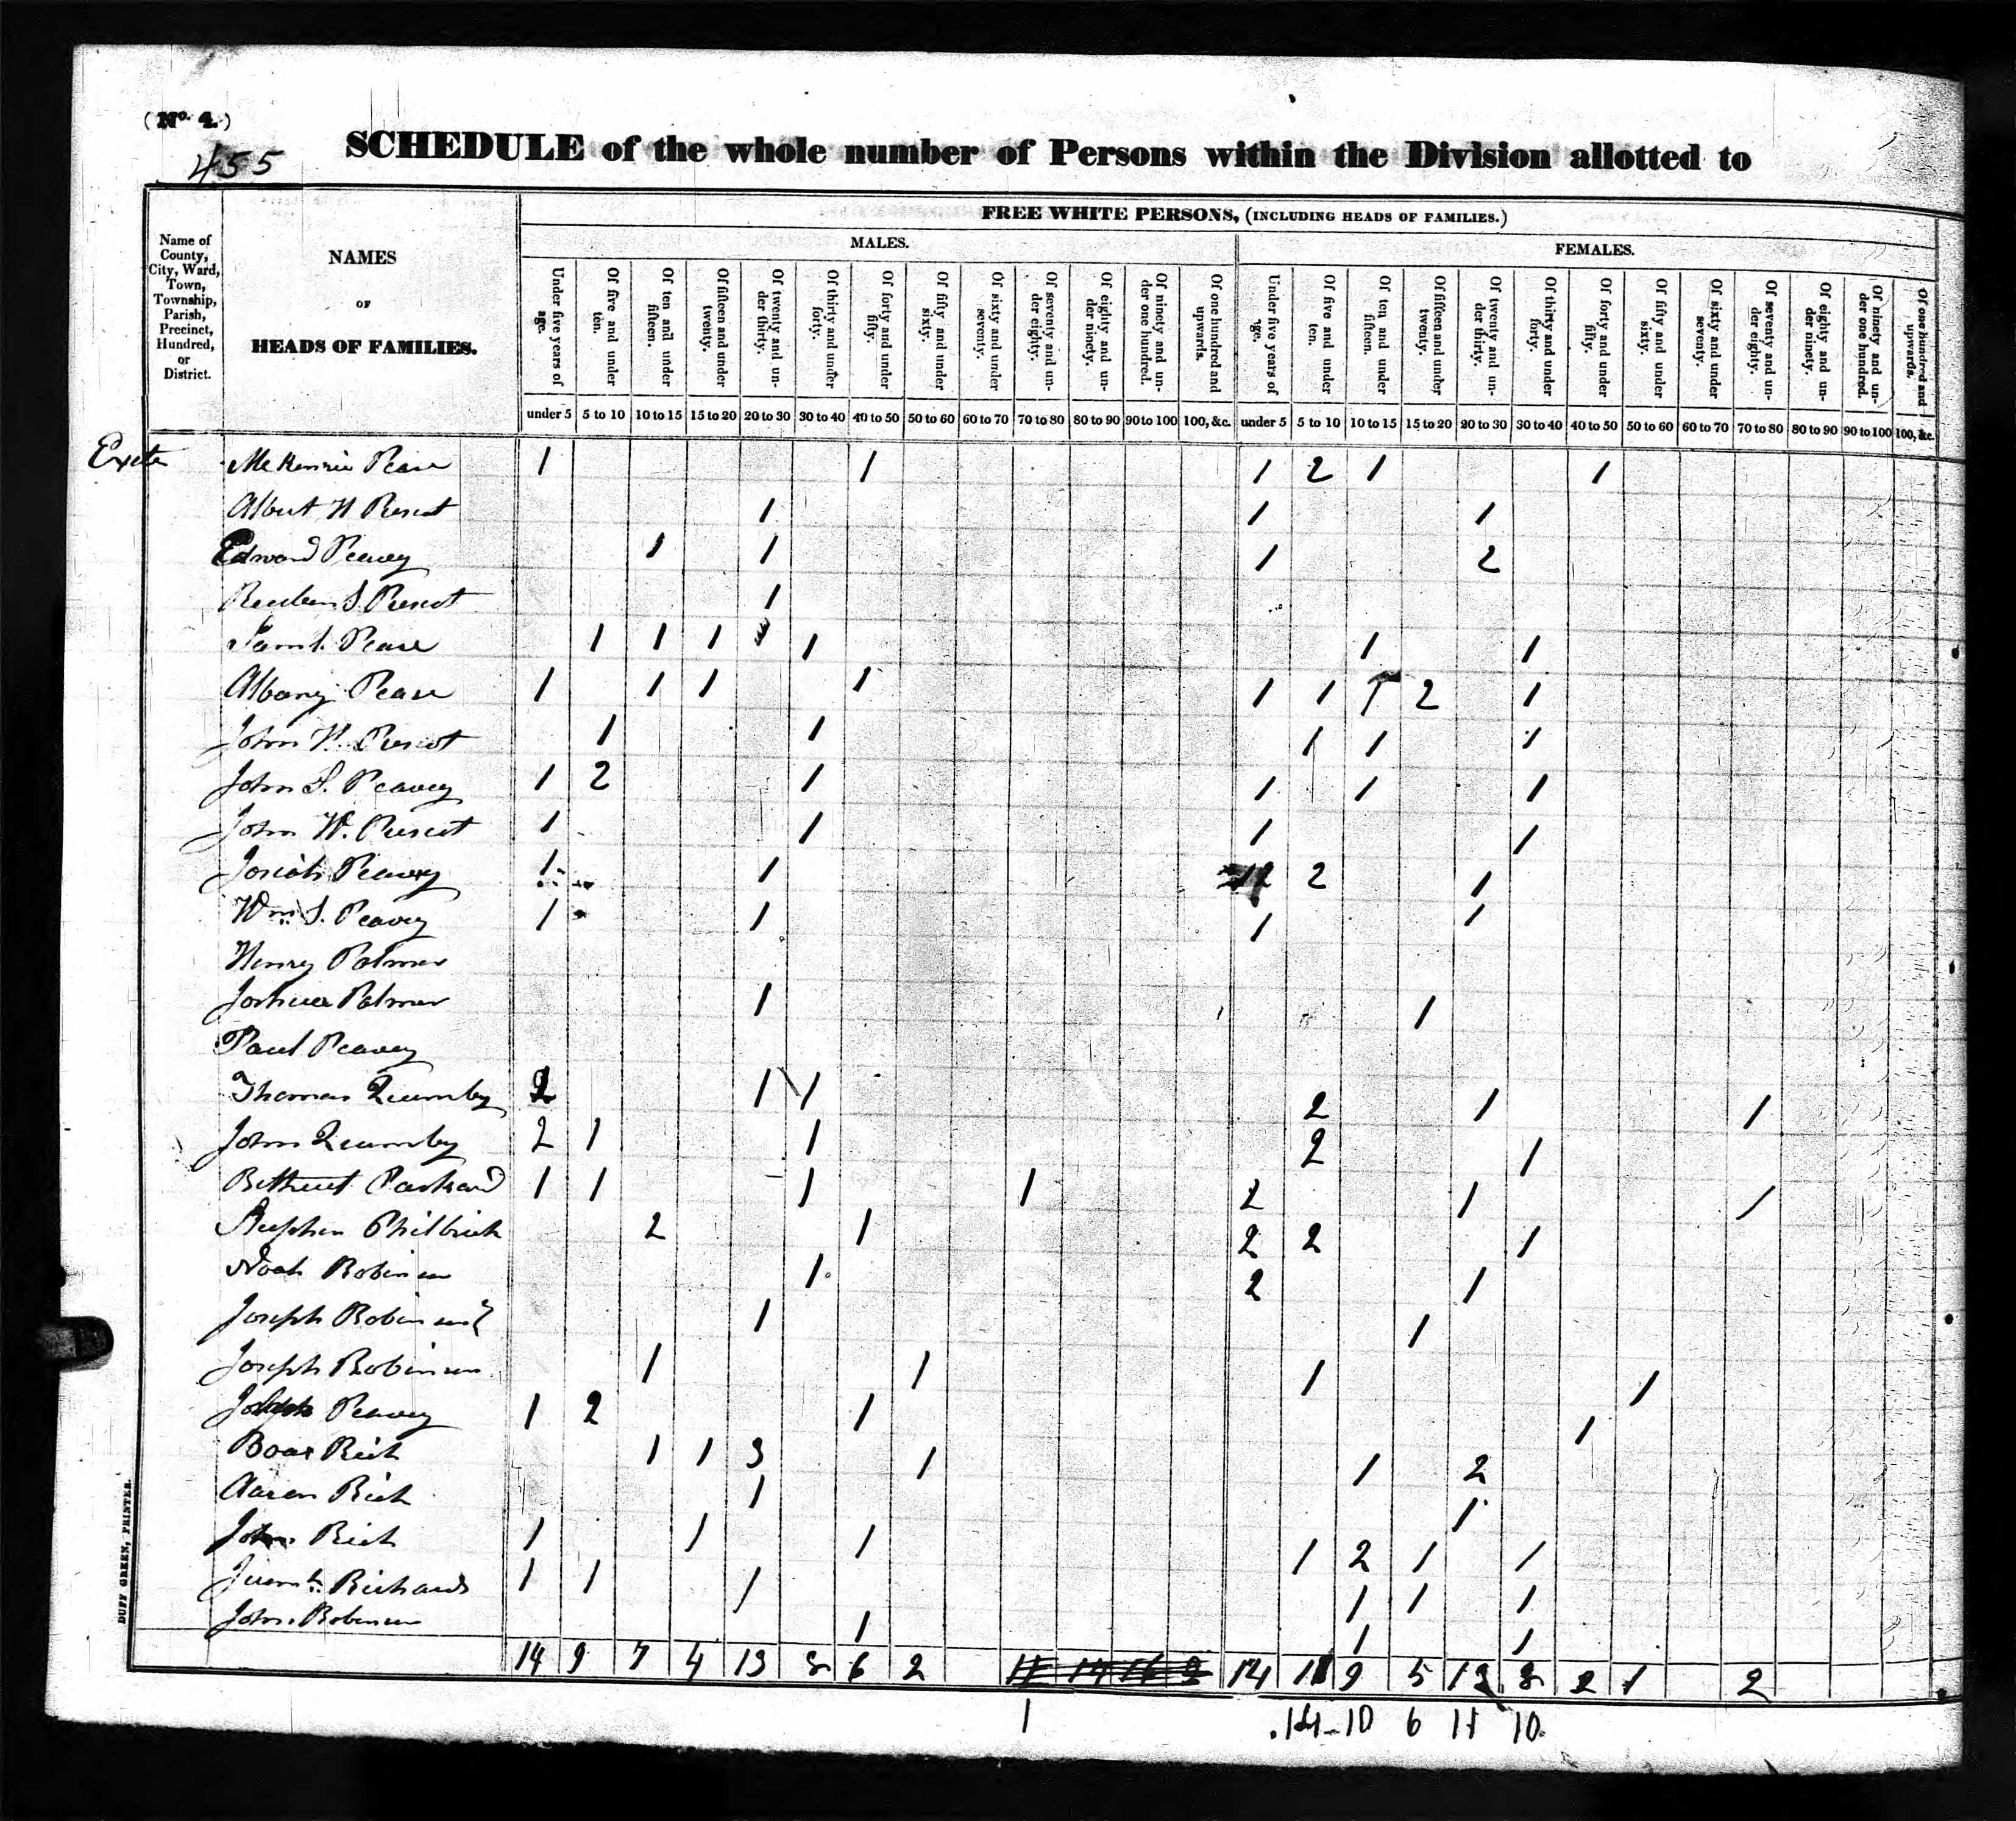 (No. 4.)
455
SCHEDULE of the whole number of Persons within the Division allotted to
Name of County, City, Ward, Town, Township, Parish, Precinct, Hundred, or District.
NAMES OF HEADS OF FAMILIES.
FREE WHITE PERSONS, (INCLUDING HEADS OF FAMILIES.)
MALES. FEMALES.
Under five years of age. Of five and under ten. Of ten and under fifteen. Of fifteen and under twenty. Of twenty and under thirty. Of thirty and under forty. Of forty and under fifty. Of fifty and under sixty. Of sixty and under seventy. Of seventy and under eighty. Of eighty and under ninety. Of ninety and under one hundred. Of one hundred and upwards. Under five years of age. Of five and under ten. Of ten and under fifteen. Of fifteen and under twenty. Of twenty and under thirty. Of thirty and under forty. Of forty and under fifty. Of fifty and under sixty. Of sixty and under seventy. Of seventy and under eighty. Of eighty and under ninety. Of ninety and under one hundred. Of one hundred and upwards.
under 5 5 to 10 10 to 15 15 to 20 20 to 30 30 to 40 40 to 50 50 to 60 60 to 70 70 to 80 80 to 90 90 to 100 100, &c. under 5 5 to 10 10 to 15 15 to 20 20 to 30 30 to 40 40 to 50 50 to 60 60 to 70 70 to 80 80 to 90 90 to 100 100, &c.
Pease 1 1 1 2 1 1
Albert H Prescot 1 1 1
Edward Peavey 1 1 1 2
Reuben S. Prescot 1
Saml. Pease 1 1 1 1 1 1
Albany Pease 1 1 1 1 1 1 1 2 1
John H. Prescot 1 1 1 1 1
John S. Peavey 1 2 1 1 1 1
John W. Prescot 1 1 1 1
Josiah Peavey 1 1 2 2 1
Wm. S. Peavey 1 1 1 1
Henry Palmer
Joshua Palmer 1 1
Paul Peavey
Thomas Quimby 2 1 1 2 1 1
John Quimby 2 1 1 2 1
Packard 1 1 1 1 2 1 1
Stephen Philbrick 2 1 2 2 1
Noah Robinson 1 2 1
Joseph Robinson 1 1
Joseph Robinson 1 1 1 1
Peavey 1 2 1 1
Boaz Rich 1 1 3 1 1 2
Aaron Rich 1 1
John Rich 1 1 1 1 2 1 1
Richards 1 1 1 1 1 1
John Robinson 1 1 1
14 9 7 4 13 8 6 2 14 11 9 5 12 8 2 1 2
1 14 10 6 11 10
DUFF GREEN, PRINTER.